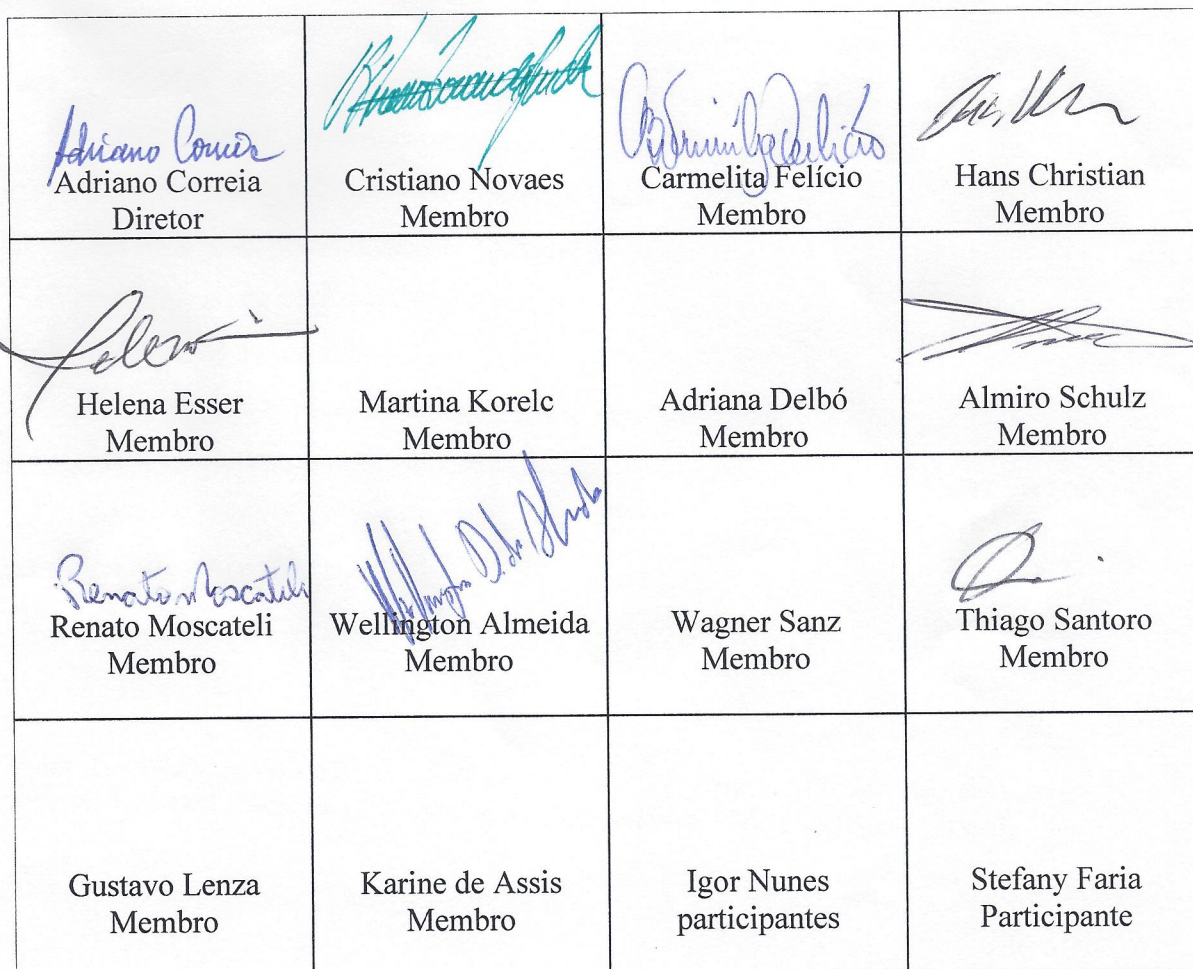 Adriano Correia
Adriano Correia
Diretor
Cristiano Novaes
Membro
Carmelita Felício
Membro
Hans Christian
Membro
Helena Esser
Membro
Martina Korelc
Membro
Adriana Delbó
Membro
Almiro Schulz
Membro
Renato Moscateli
Renato Moscateli
Membro
Wellington Almeida
Membro
Wagner Sanz
Membro
Thiago Santoro
Membro
Gustavo Lenza
Membro
Karine de Assis
Membro
Igor Nunes
participantes
Stefany Faria
Participante